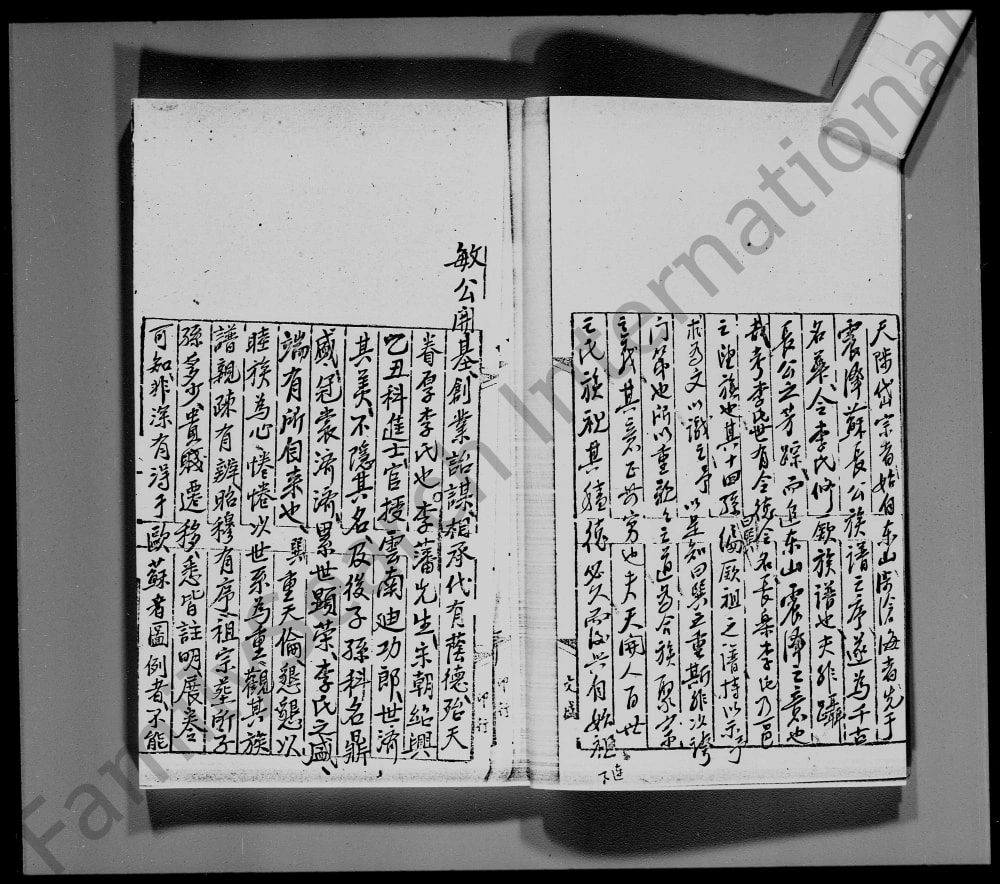 天際岱宗者始自东山際滄海者先于
震澤蘇長公族譜之序遂為千古
名筆今李氏修歐族譜也夫非躡
長公之芳踪而追东山震澤之意也
哉考李氏世有令德令名長桑李氏乃邑
之望族也其十四孫繼歐祖之譜持以示予
求为文以識之予以是知曰興之重斯非以誇
门第也所以重敦之之道為合族聚宗
之義其意正無穷也夫天開人百世
之氏族祀其積德必久而後兴有如祖
下连
文儀
敏公開基創業詒謀相承代有蔭德殆天
眷厚李氏也李藩先生宋朝紹興
乙丑科進士官授雲南迪功郎世濟
其美不隱其名及後子孫科名鼎
盛冠裳濟濟累世顯荣李氏之盛
端有所自来也巽重天倫懇懇以
睦族為心惓惓以世系為重觀其族
譜親疎有辨昭穆有序祖宗塋所子
孫多少貴賤遷移悉皆註明展卷
可知非深有得于歐蘇者圖例者不能
印行
印行
FamilySearch International